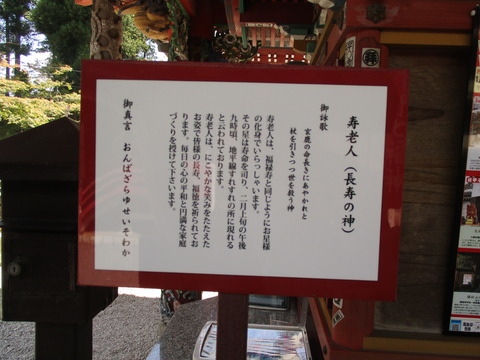 寿老人（長寿の神）
御詠歌
玄鹿の命長きにあやかれと
杖を引きつつ世を救う神
寿老人は、福禄寿と同じようにお星様
の化身でいらっしゃいます。
その星は寿命を司り、二月上旬の午後
九時頃、地平線すれすれの所に現れる
と云われております。
寿老人は、にこやかな笑みをたたえた
お姿で皆様の長寿、福徳を祈られてお
ります。毎日の心の平和と円満な家庭
づくりを授けて下さいます。
御真言　おんばざらゆせいそわか